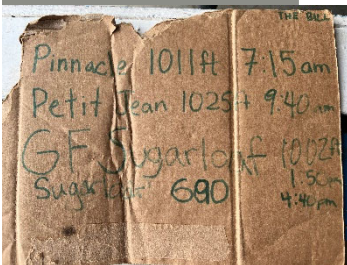 THE BILL
Pinnacle 1011ft 7:15am
Petit Jean 1025ft 9:40am
GF Sugarloaf 1002ft
1:50pm
Sugarloaf 690 4:40pm